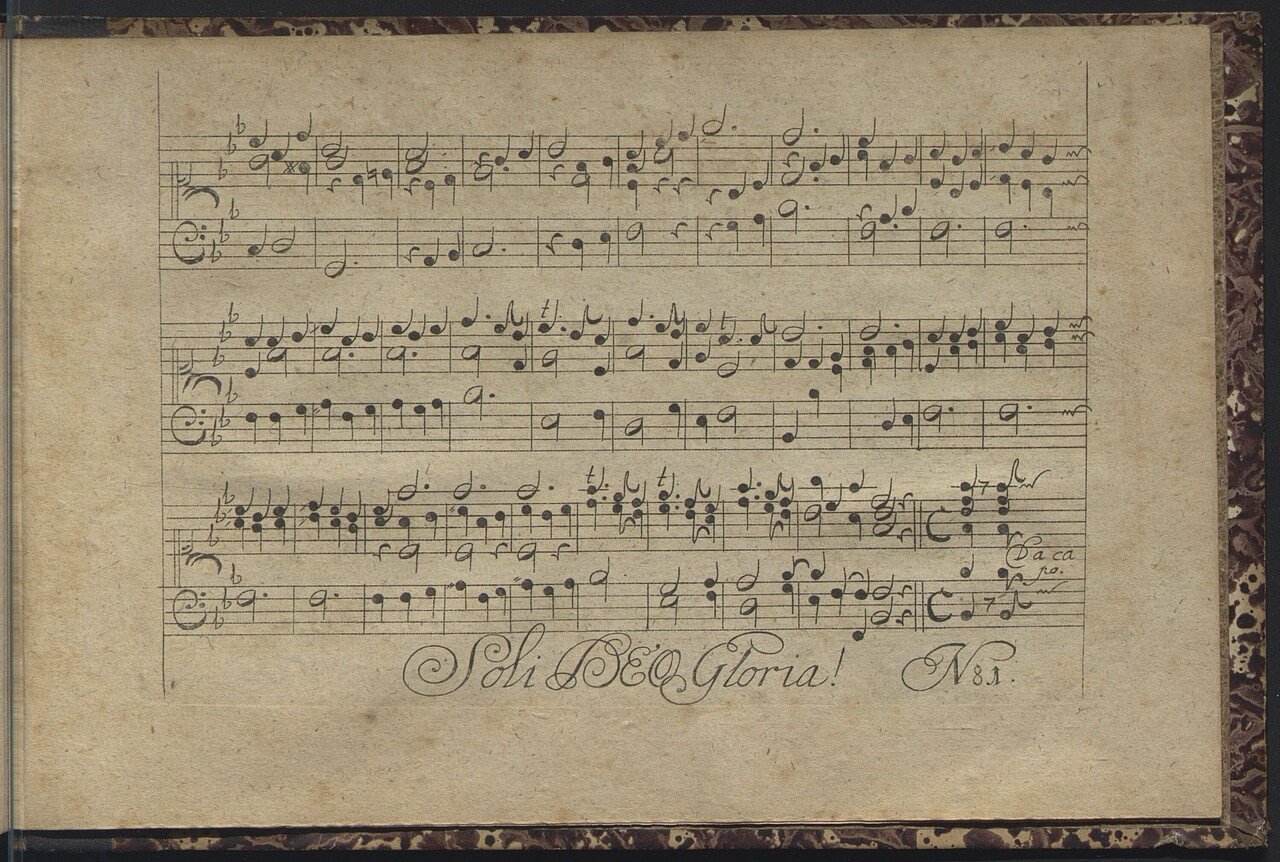 t
t
t t
Da ca
po.
Soli DEO Gloria! N 81.